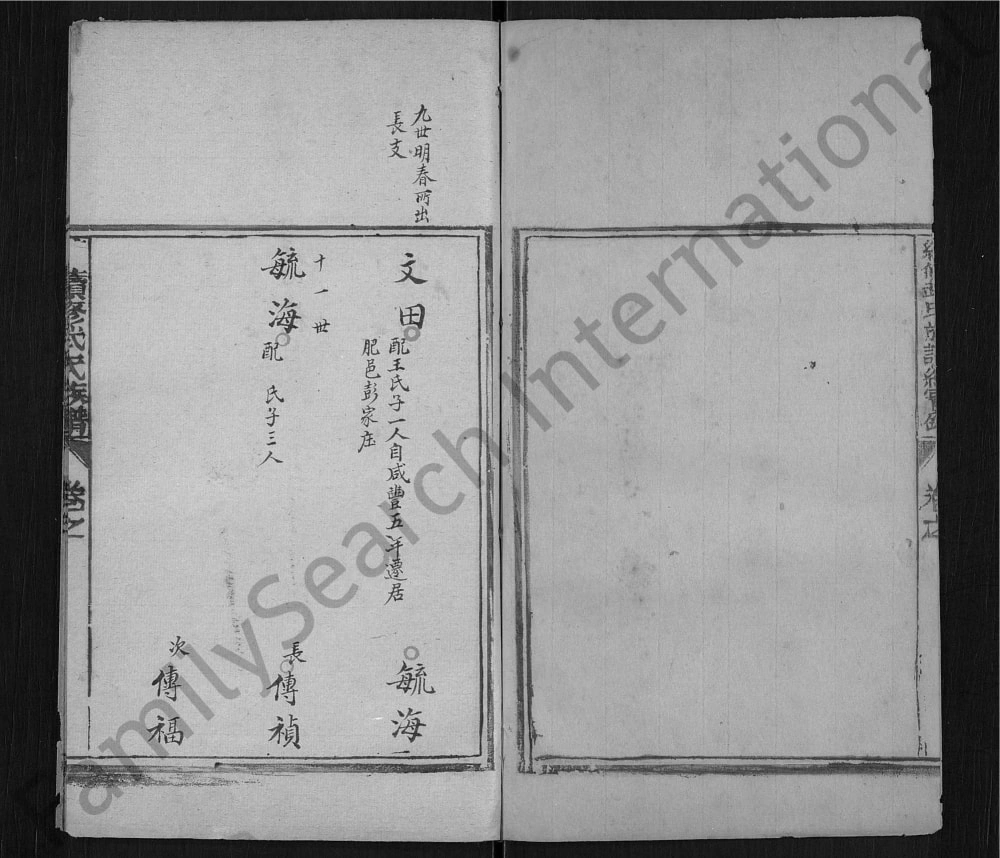 九世明春所出
長支
文田
配王氏子一人自咸豐五年遷居
肥邑彭家庄
毓海
十一世
毓海
配 氏子三人
長
傳禎
次
傳福
續修武氏族譜
卷之
FamilySearch International